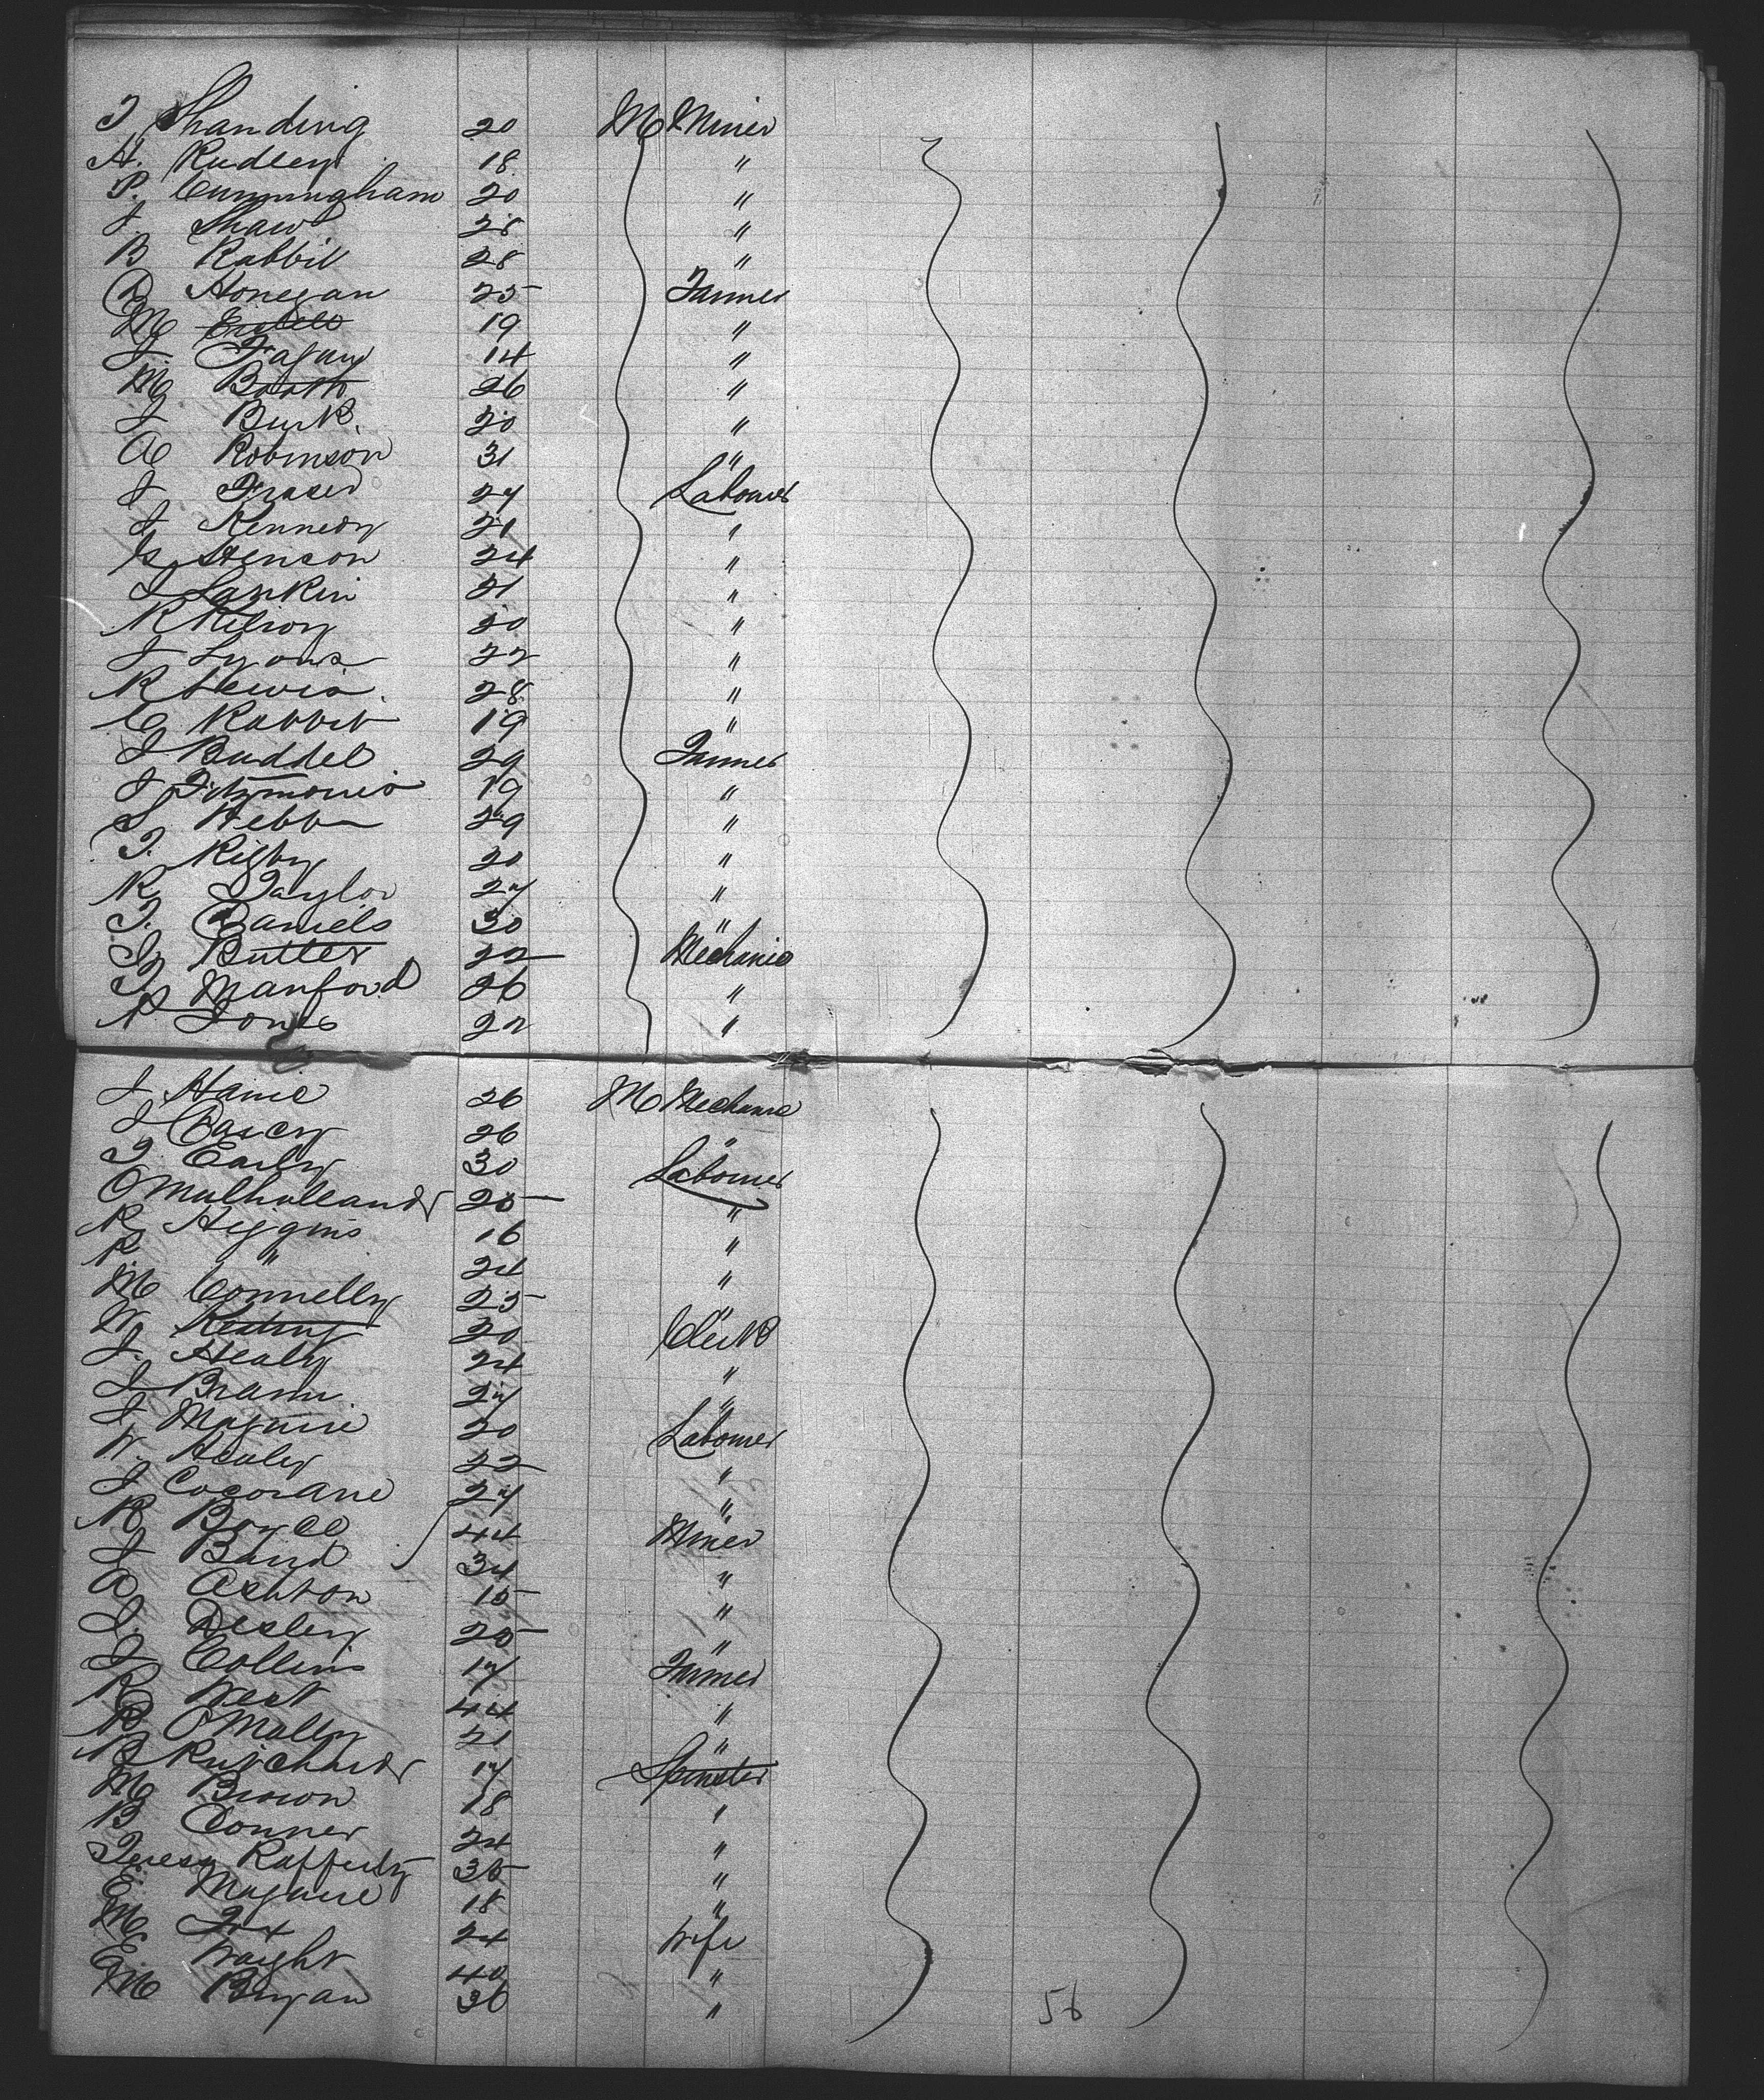 T Shanding 20 M Miner
H. Rudley 18 "
P. Cunningham 20 "
J. Shaw 28 "
B Rabbit 28 "
D Honegan 25 Farmer
M 19 "
J. Fagan 14 "
M Booth 26 "
J Burk. 20 "
A Robinson 31 "
J Fraser 27 Labourer
J Kennedy 21 "
G Stenson 24 "
J Larkin 21 "
R 20 "
J Lyons 22 "
R Lewis. 28 "
C Rabbit 19 "
J Buddel 29 Farmer
J Fitzmorris 19 "
S Webb 29 "
T. Rigby 20 "
R Taylor 27 "
T. Daniels 30 "
Butler 22 Mechanic
T Manford 26 "
R Jones 22 "
J Hanie 26 M Mechanic
J Dascy 26 "
T. Early 30 Labourer
O Mulhulleand 25 "
R Higgins 16 "
R " 24 "
M Connelly 25 "
W Keating 20 Clerk
J. Healy 24 "
J Brann 27 "
J Maguire 20 Labourer
W. Healey 22 "
J Cocorane 27 "
R Boyce 44 Miner
J Baird 34 "
A Ashton 15 "
J. Desley 25 "
J Collins 17 Farmer
R West 44 "
B O'Mally 21 "
17 Spinster
M Brown 18 "
B Conner 24 "
Teresa Rafferty 35 "
E. Maguire 18 "
M Fox 24 Wife
E Waight 40 "
M Bryan 36 "
56